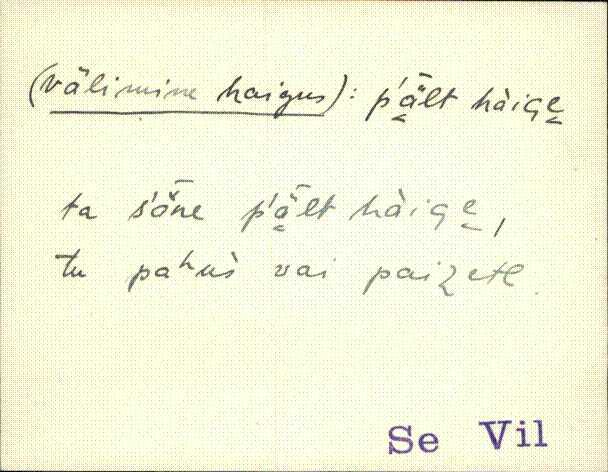 (välimine haigus): p'ǟ̬lt hàige̬
ta s'ǟ̮ne p'ǟ̬lt hàige̬,
tu pahùs vai paizetE.
Se Vil